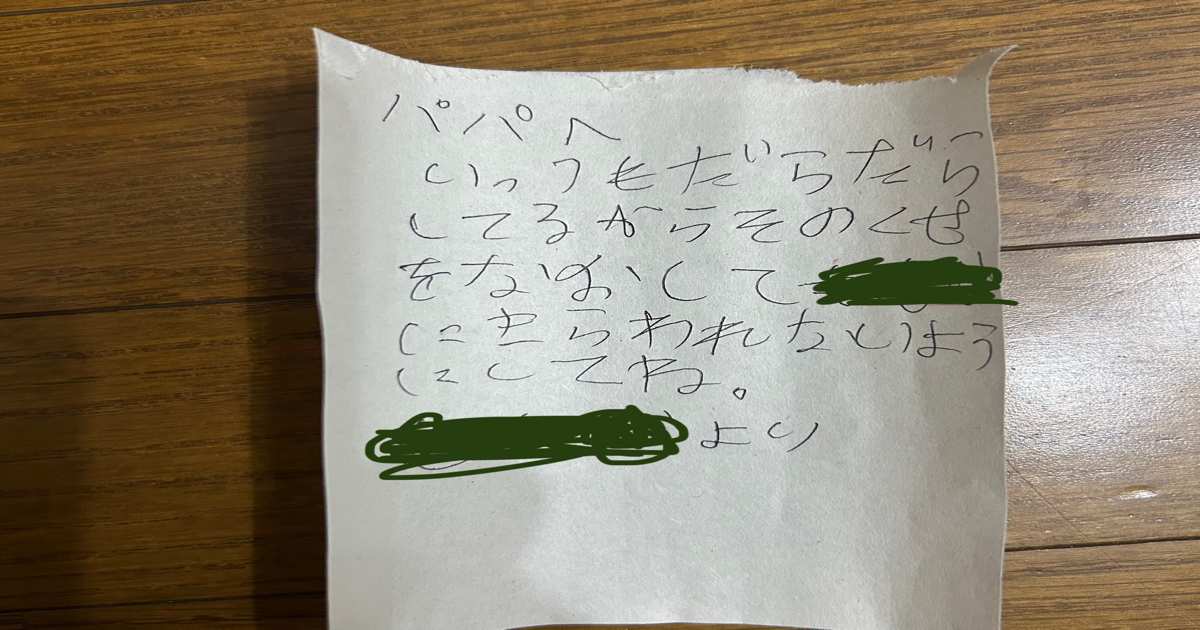 パパへ
いっつもだらだら
してるからそのくせ
をなおして
にきらわれないよう
にしてね。
より